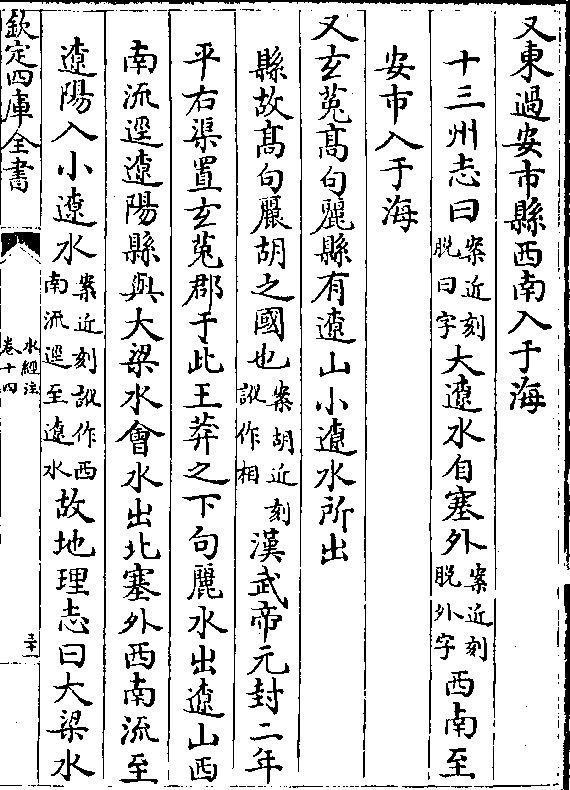 又東過安市縣西南入于海
十三州志曰案近刻脱曰字大遼水自塞外案近刻脱外字西南至
安市入于海
又玄菟髙句麗縣有遼山小遼水所出
縣故髙句麗胡之國也案胡近刻訛作相漢武帝元封二年
平右渠置玄菟郡于此王莽之下句麗水出遼山西
南流逕遼陽縣與大梁水會水出北塞外西南流至
遼陽入小遼水案近刻訛作西南流逕至遼水故地理志曰大梁水
欽定四庫全書
水經注
卷十四